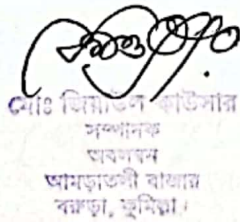 মোঃ জিয়াউল কাউসার
সম্পাদক
অবলম্বন
আমড়াতলী বাজার
বরুড়া, কুমিল্লা।